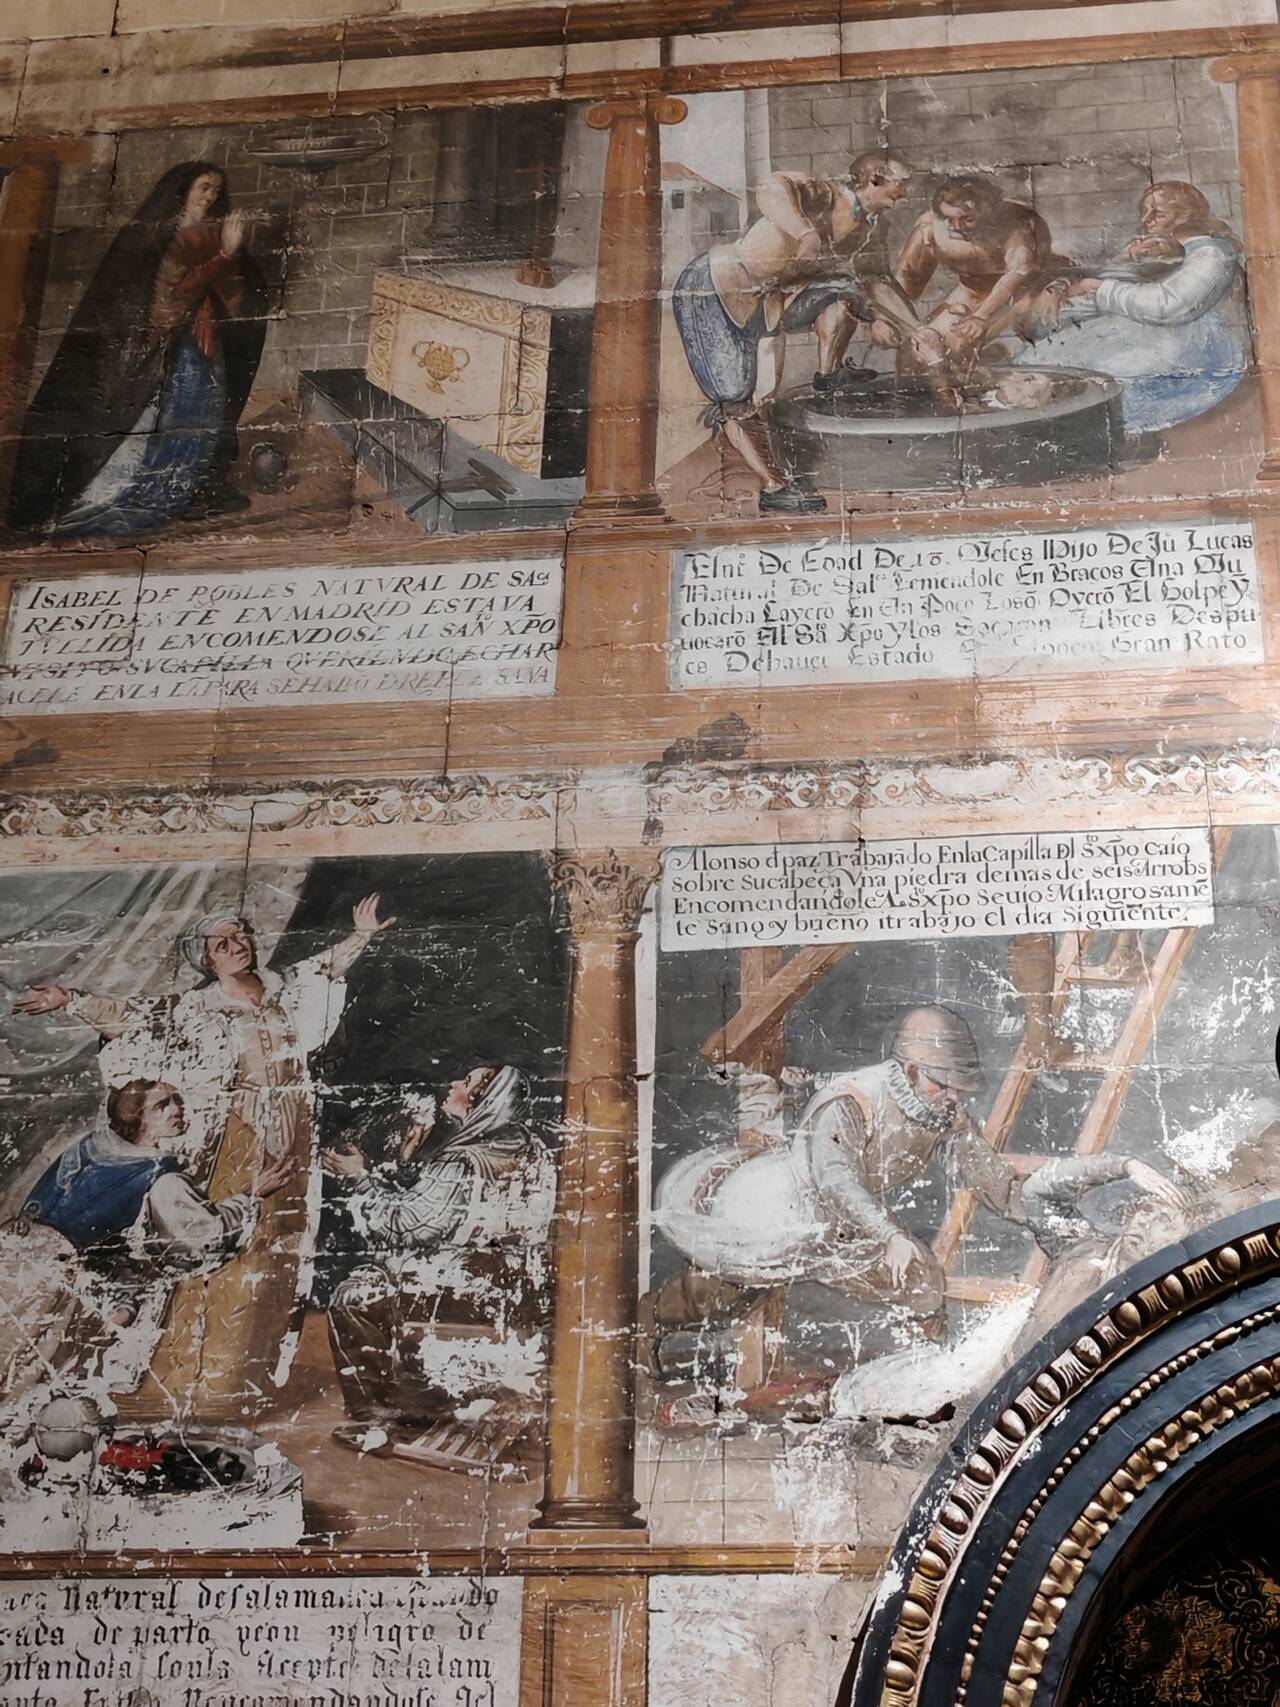 ISABEL DE ROBLES NATVRAL DE SAª
RESIDENTE EN MADRID ESTAVA
TVLLIDA ENCOMENDOSE AL SAN̄ᵗᵒ XP̄O
VISITO SV CAPILLA QVERIENDO ECHAR
ACEITE EN LA LĀPARA SE HALLO SANA
De Edad De 18. Meses Hijo De Juº Lucas
Natural De Salª Teniendole En Braços Una Mu
chacha Cayerō En Un Poço Losq̄ Oyerō El Golpe Ȳ
uocarō Al Sº Xpo Y los Sacaron Libres Despu
es De hauer Estado Gran Rato
Alonso d paz Trabajādo En la Capilla Dl Sᵗᵒ xp̄o caio
Sobre Su cabeça Vna piedra de mas de seis Arrobs
Encomendandole A Sᵗᵒ xp̄o Se uio Milagrosamē
te Sano y bueno i trabajo el dia Siguiente.
Natural de salamanca
de parto peligro de
Aceyte de salam
Encomendandose